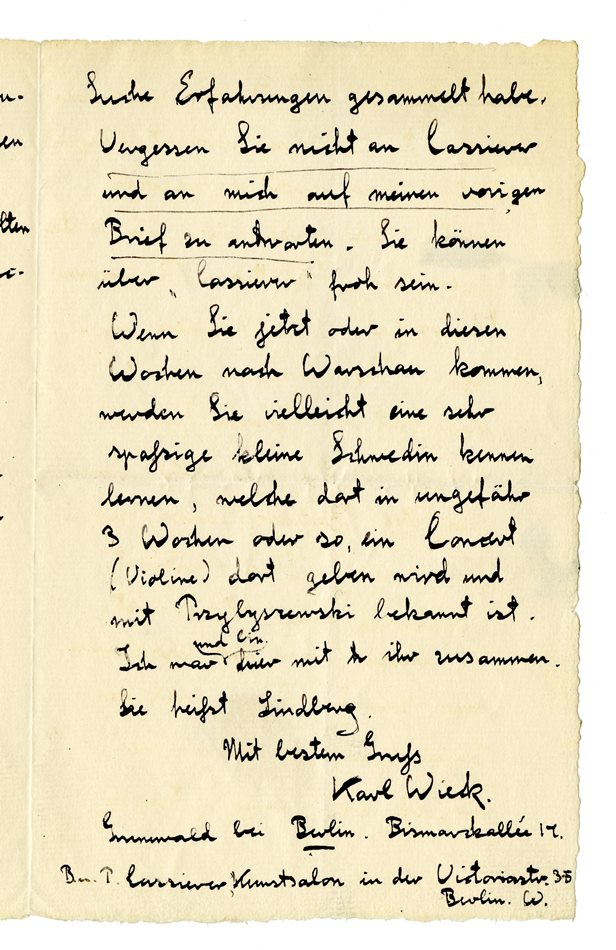 n-
en
lten
ei-
Suche Erfahrungen gesammelt habe.
Vergessen Sie nicht an Cassierer
und an mich auf meinen vorigen
Brief zu antworten. Sie können
über „Cassierer“ froh sein.
Wenn Sie jetzt oder in diesen
Wochen nach Warschau kommen,
werden Sie vielleicht eine sehr
spassige kleine Schwedin kennen
lernen, welche dort in ungefähr
3 Wochen oder so, ein Concert
(Violine) dort geben wird und
mit Przybyszewski bekannt ist.
und bin
Ich war hier mit ihr zusammen.
Sie heißt Lindberg.
Mit bestem Gruß
Karl Wieck.
Grunewald bei Berlin. Bismarckallée 17.
B. u. P. Cassierer, Kunstsalon in der Victoriastr. 35
Berlin. W.